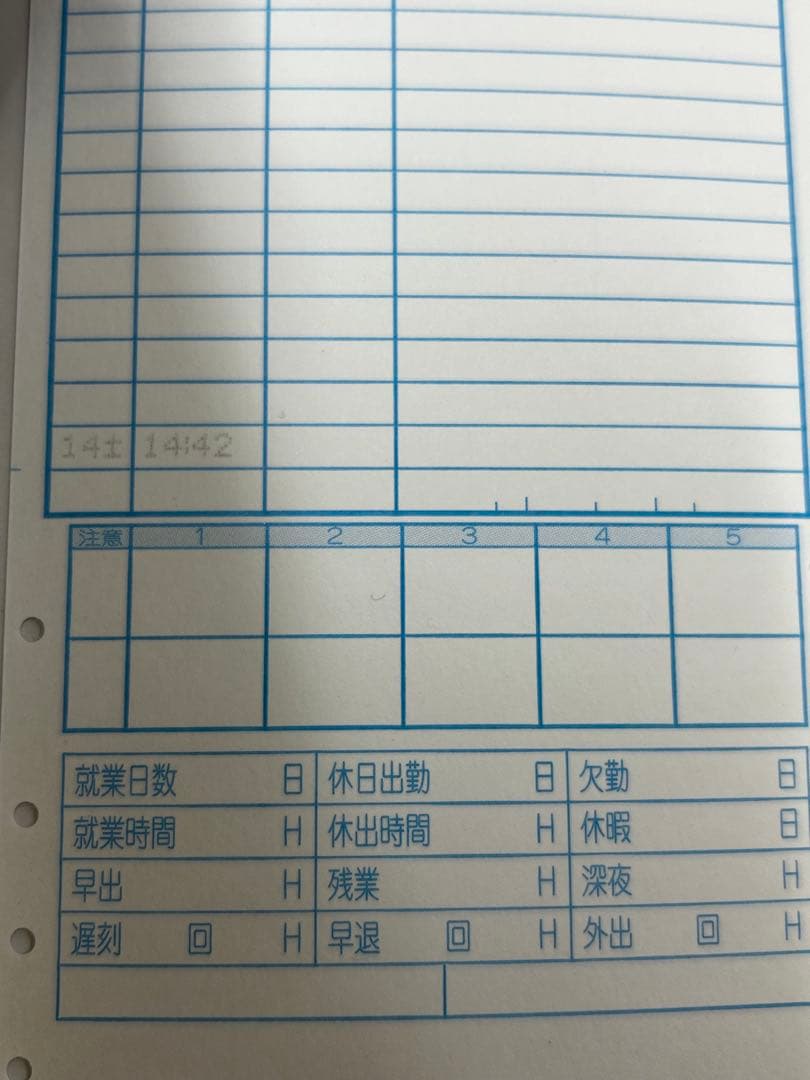 14土 14:42
注意 1 2 3 4 5
就業日数 日 休日出勤 日 欠勤 日
就業時間 H 休出時間 H 休暇 日
早出 H 残業 H 深夜 H
遅刻 回 H 早退 回 H 外出 回 H